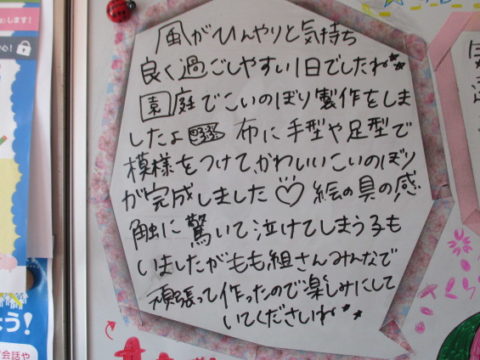 風がひんやりと気持ち
良く過ごしやすい1日でしたね
園庭でこいのぼり製作をしま
したよ 布に手型や足型で
模様をつけて、かわいいこいのぼり
が完成しました♡ 絵の具の感
触に驚いて泣けてしまう子も
いましたがもも組さんみんなで
頑張って作ったので楽しみにして
いてくださいね
します!
心!
う!
会話や